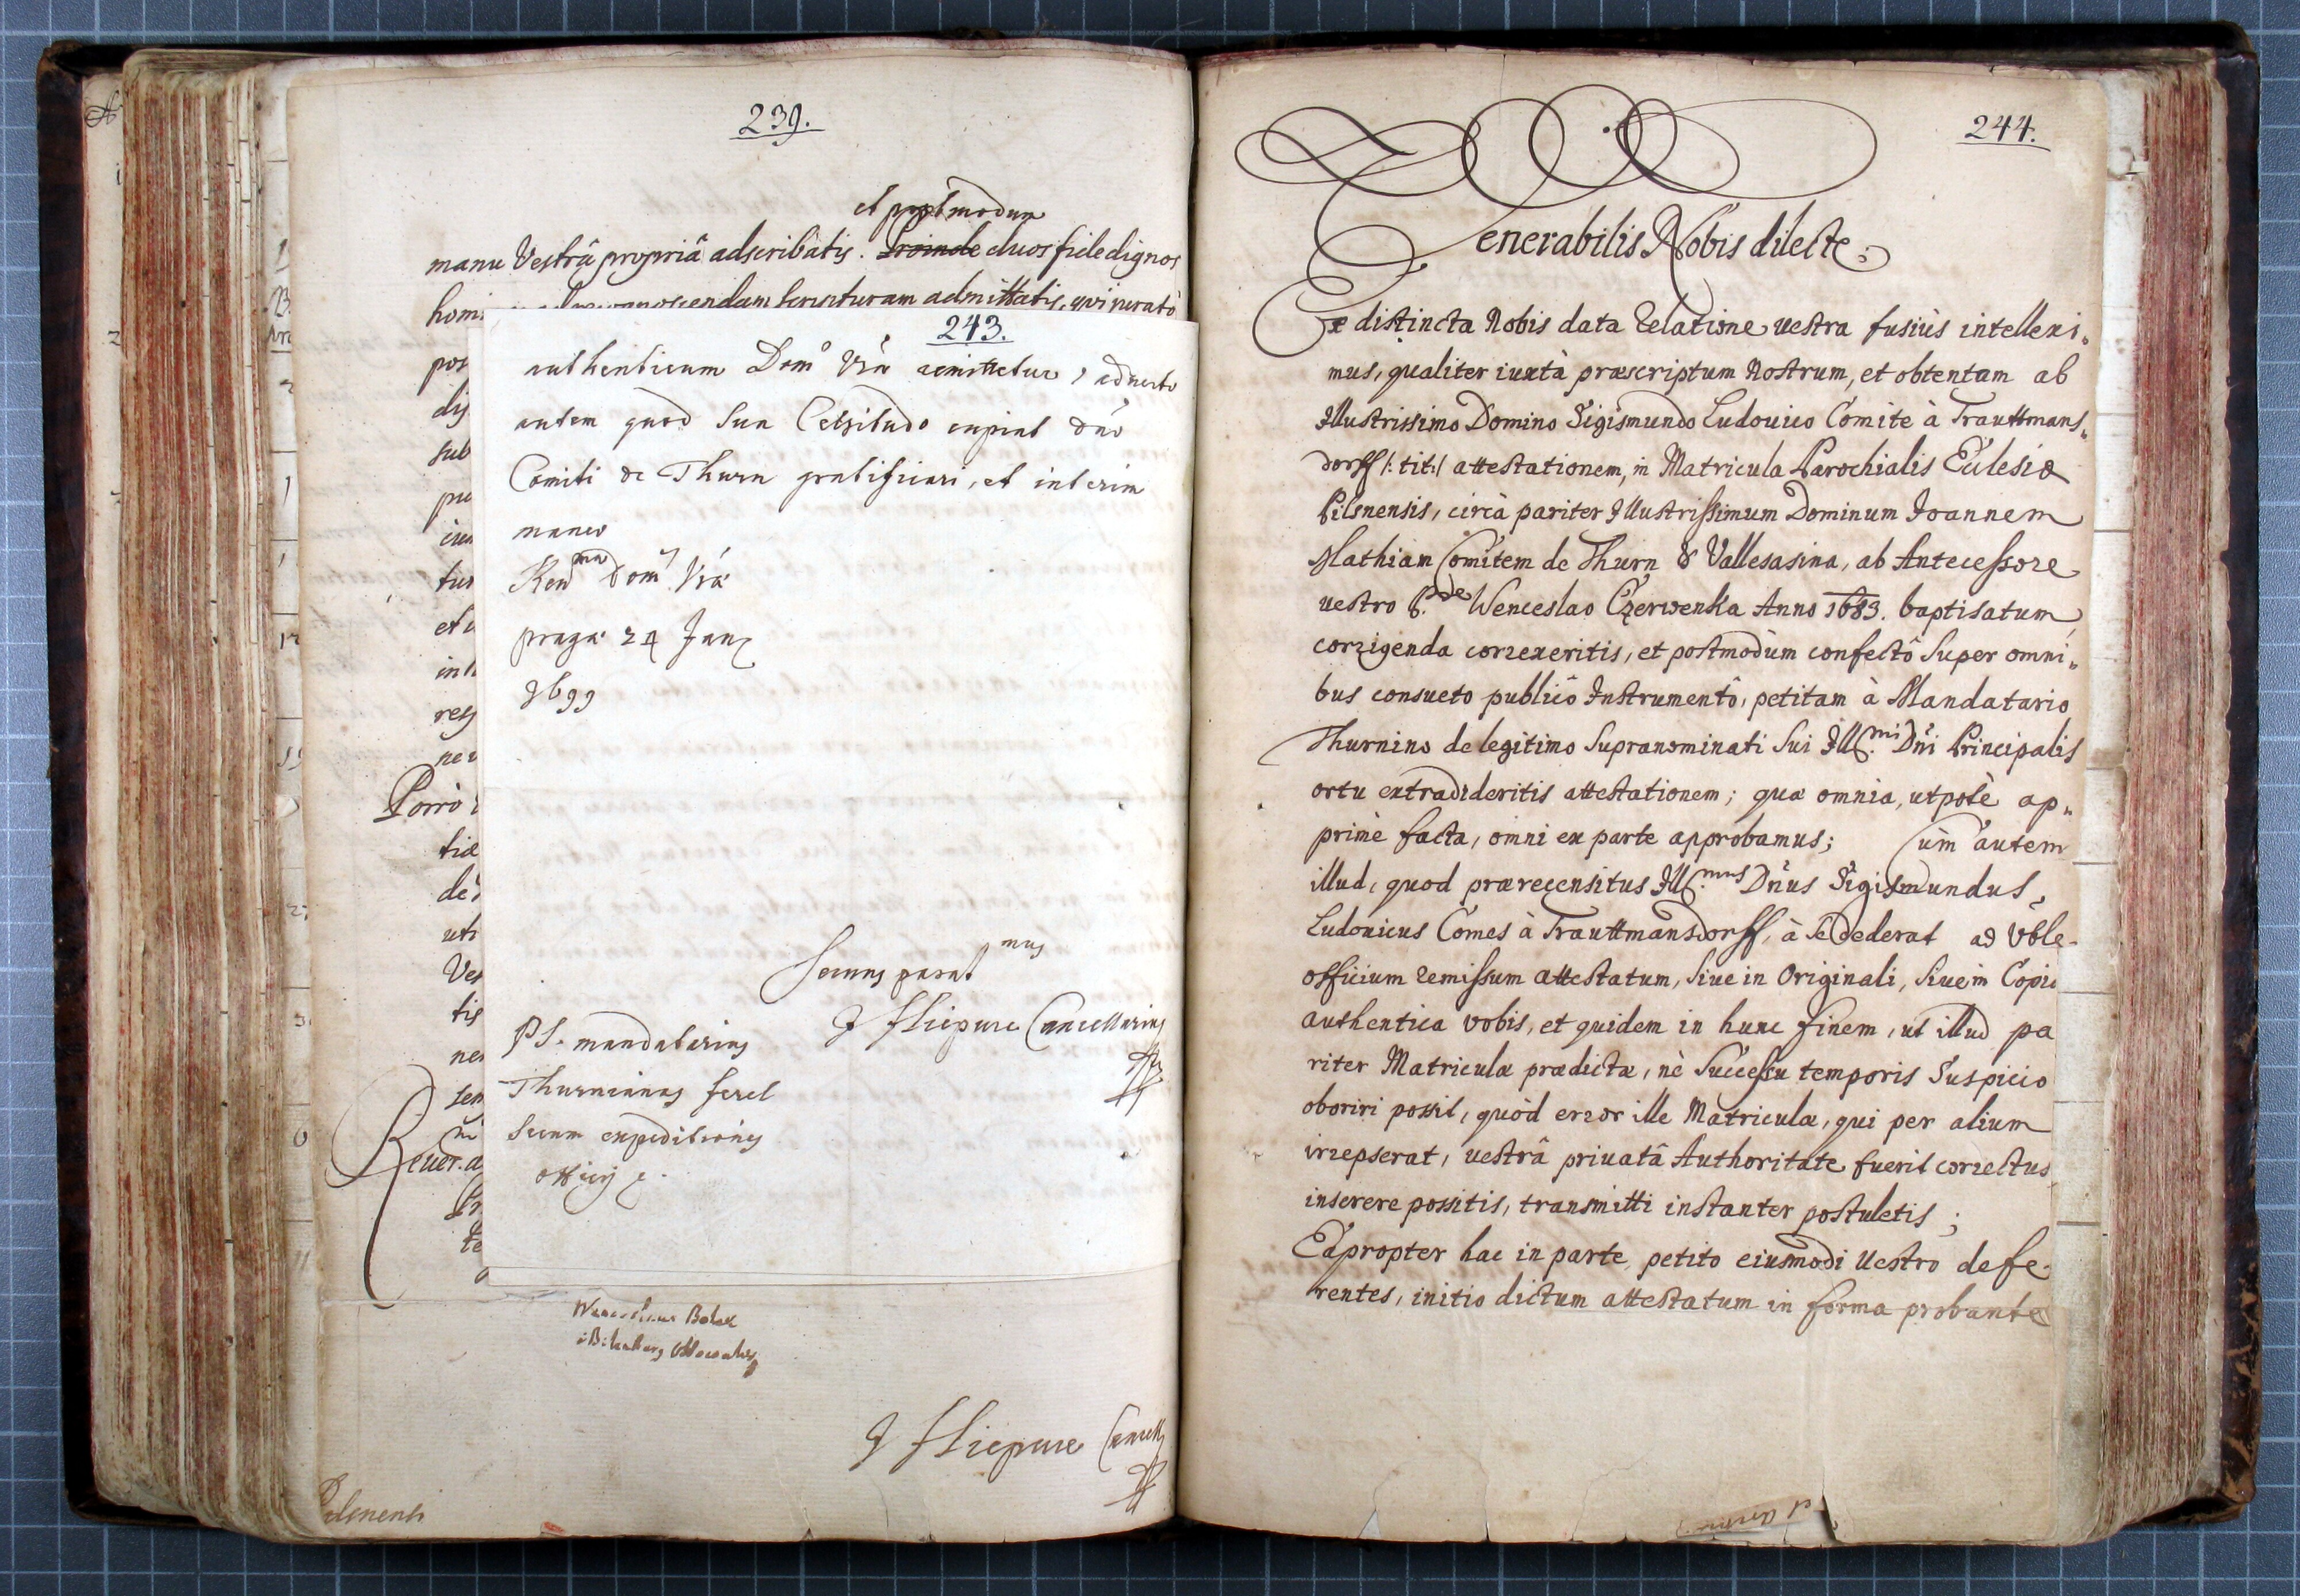 239.
et postmodum
manu Vestrâ propriâ adscribatis. Proinde duos fide dignos
scripturam admittatis, qui iuratò
pos
dis
sub
pu
tur
et
in
res
ne
Porrò
tiæ
de
uti
Ves
tis
ne
sen
Reuer. a
te
243.
authenticum Dom̃ Vrã remittetur, aduerto
autem quod Sua Celsitudo cupiat dño
Comiti de Thurn gratificari, et interim
maneo
Ren̄ma Dom̃ Vrã
pragæ 24 Jan
1699
Seruus parat mus
J Hiepure Cancellarius
PS. mandatarius
Thurnianus feret
secum expeditiones
officij
J Hiepure Cancell
Pilsnensi
244.
Venerabilis Nobis dilecte:
Ex distincta Nobis data relatione uestra fusiùs intellexi„
mus, qualiter iuxtà præscriptum Nostrum, et obtentam ab
Illustrissimo Domino Sigismundo Ludouico Comite à Trauttmans„
dorff /: tit:/ attestationem, in Matricula Parochialis Ecclesiæ
Pilsnensis, circà pariter Illustrissimum Dominum Joannem
Mathiam Comitem de Thurn & Vallesasina, ab Antecessore
uestro P.de Wenceslao Czerwenka Anno 1683. baptisatum,
corrigenda correxeritis, et postmodùm confectô super omni„
bus consueto publicô Instrumentô, petitam à Mandatario
Thurnino de legitimo supranominati sui Ill.mi Dñi Principalis
ortu extradideritis attestationem; quæ omnia, utpotè ap„
primè facta, omni ex parte approbamus; Cùm autem
illud, quod prærecensitus Ill.mus Dñus Sigismundus
Ludouicus Comes à Trauttmansdorff, à se dederat ad Vble
officium remissum attestatum, siue in Originali, siue in Copia
authentica vobis, et quidem in hunc finem, ut illud pa
riter Matriculæ prædictæ, nè Successu temporis Suspicio
oboriri possit, quòd error ille Matriculæ, qui per alium
irrepserat, uestrâ priuatâ Authoritate fuerit correctus
inserere possitis, transmitti instanter postuletis;
Eapropter hac in parte petito eiusmodi Uestro defe-
rentes, initio dictum attestatum in forma probante